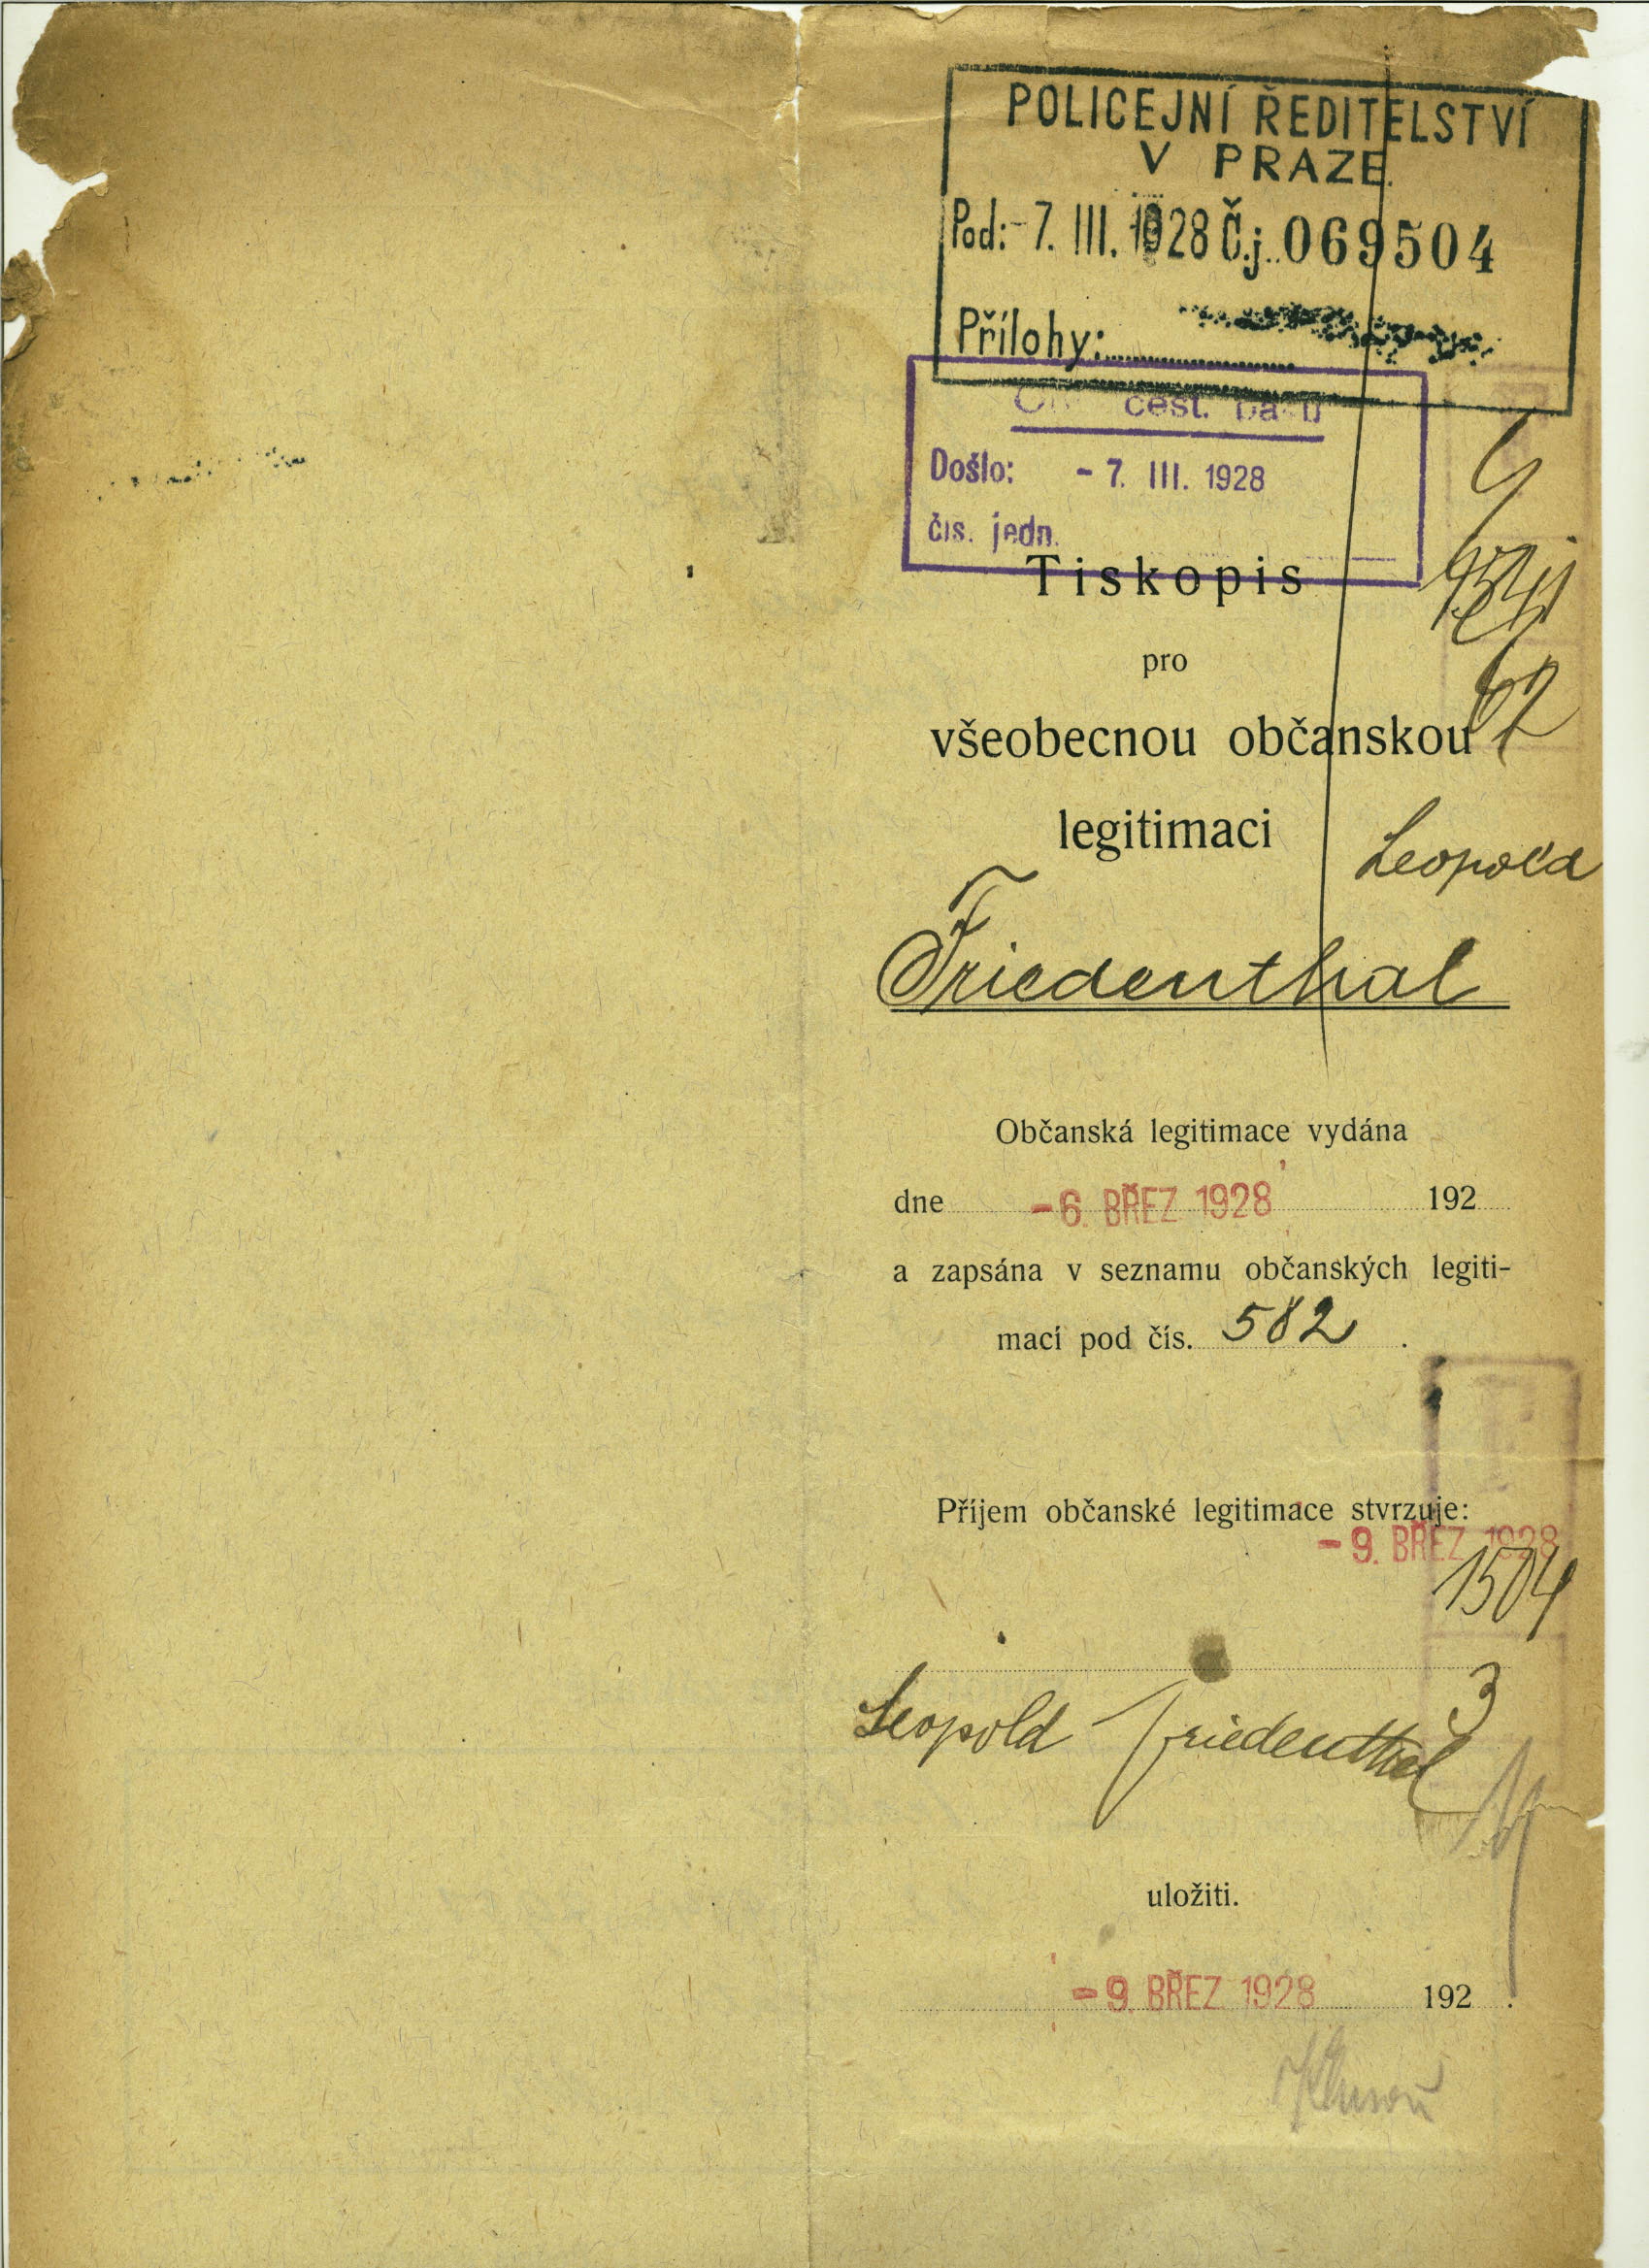 POLICEJNÍ ŘEDITELSTVÍ
V PRAZE.
Pod: - 7. III. 1928 Č.j. 069504
Přílohy:
cest.
Došlo: - 7. III. 1928
čís. jedn.
Tiskopis
pro
všeobecnou občanskou
legitimaci
Leopold
Friedenthal
Občanská legitimace vydána
dne - 6. BŘEZ 1928 192
a zapsána v seznamu občanských legiti-
mací pod čís. 582 .
Příjem občanské legitimace stvrzuje:
- 9. BŘEZ 1928
1504
3
Leopold Friedenthal
uložiti.
- 9. BŘEZ 1928 192 .